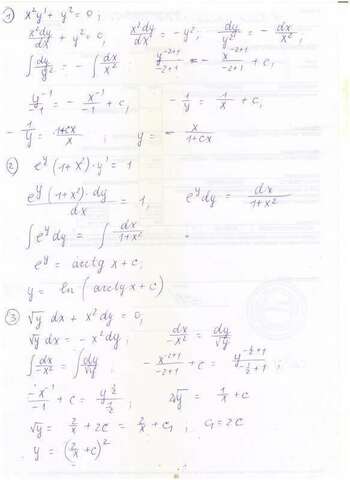 1) x²y' + y² = 0;
x²dy/dx + y² = 0, x²dy/dx = -y², dy/y² = - dx/x²,
∫ dy/y² = - ∫ dx/x² y^(-2+1)/(-2+1) = - x^(-2+1)/(-2+1) + c,
y⁻¹/-1 = - x⁻¹/-1 + c, - 1/y = 1/x + c,
- 1/y = (1+cx)/x ; y = - x/(1+cx)
2) e^y (1+x²)·y' = 1
e^y (1+x²)·dy/dx = 1, e^y dy = dx/(1+x²)
∫ e^y dy = ∫ dx/(1+x²)
e^y = arctg x + c;
y = ln (arctg x + c)
3) √y dx + x² dy = 0,
√y dx = - x² dy ; dx/-x² = dy/√y
∫ dx/-x² = ∫ dy/√y ; - x^(-2+1)/(-2+1) + c = y^(-1/2+1)/(-1/2+1) ;
-x⁻¹/-1 + c = y^(1/2)/(1/2) ; 2√y = 1/x + c
√y = 2/x + 2c = 2/x + c₁ , c₁ = 2c
y = (2/x + c)²